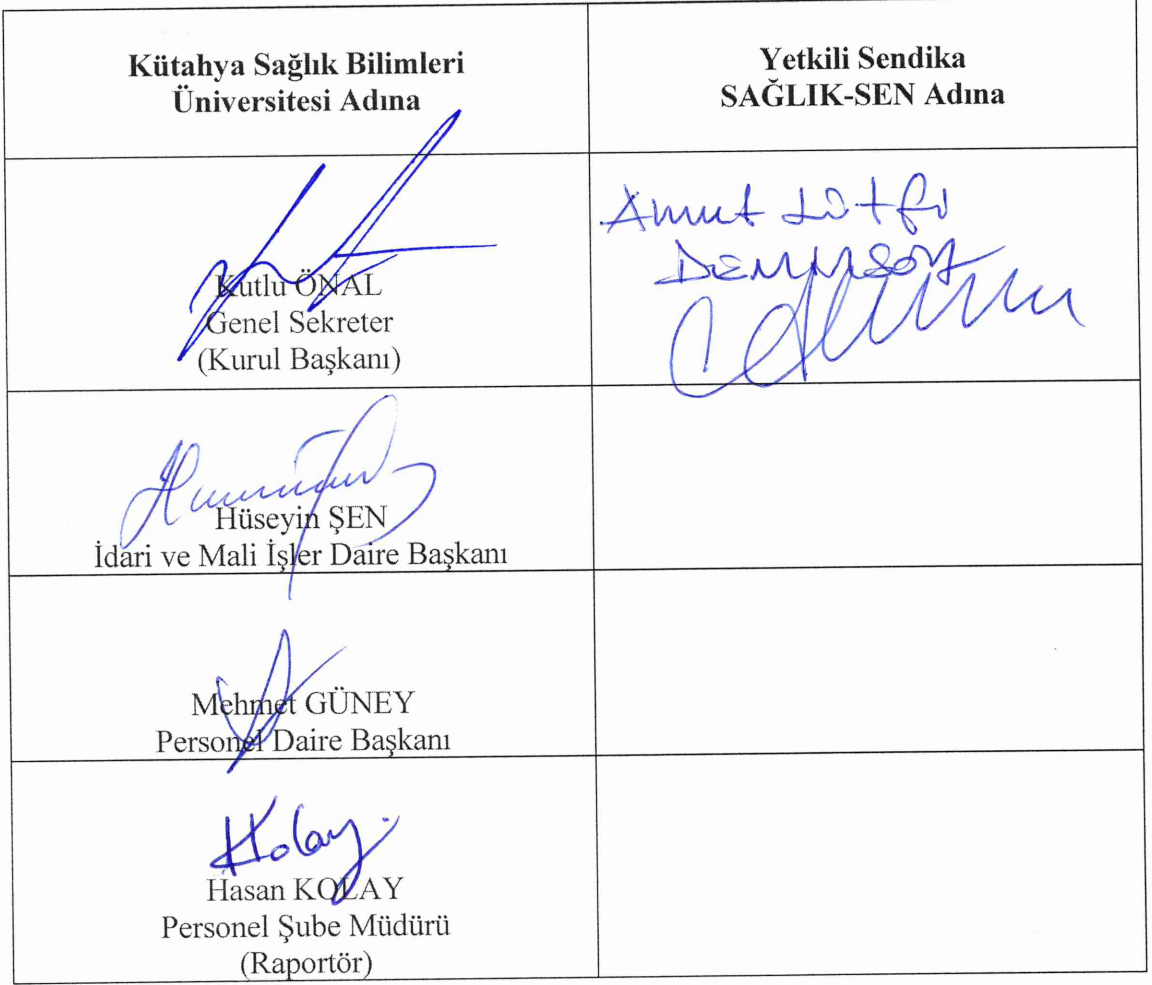 Kütahya Sağlık Bilimleri
Üniversitesi Adına
Yetkili Sendika
SAĞLIK-SEN Adına
Kutlu ÖNAL
Genel Sekreter
(Kurul Başkanı)
Lütfi
Hüseyin ŞEN
İdari ve Mali İşler Daire Başkanı
Mehmet GÜNEY
Personel Daire Başkanı
HKolay.
Hasan KOLAY
Personel Şube Müdürü
(Raportör)